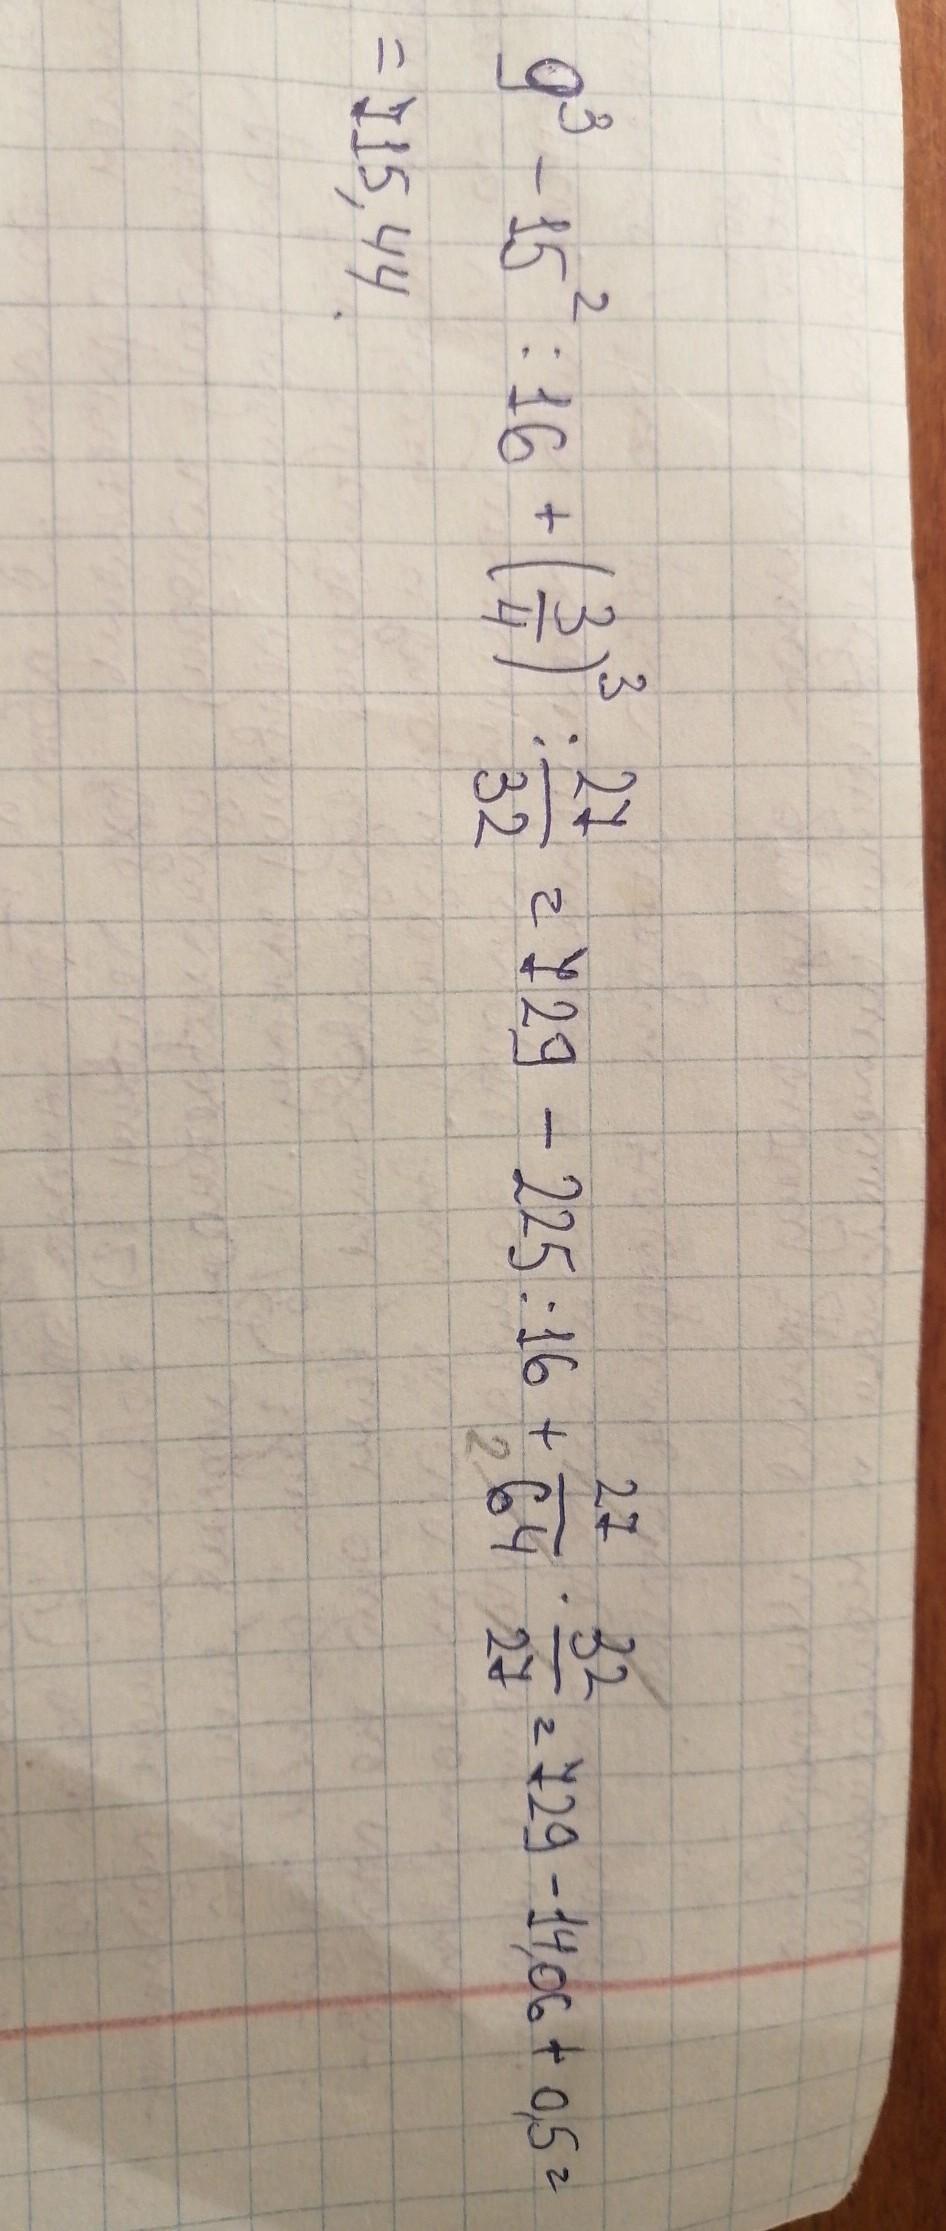 9³ - 15² : 16 + (3/4)³ : 27/32 = 729 - 225 : 16 + 27/64 · 32/27 = 729 - 14,06 + 0,5 =
= 715,44.